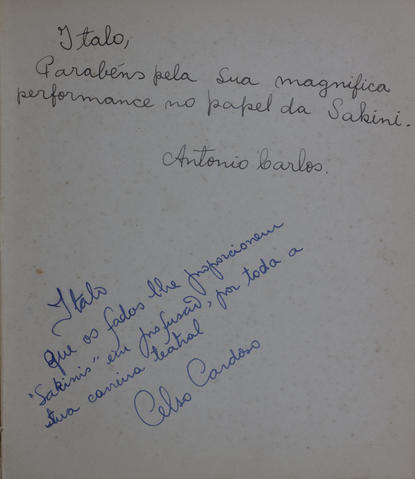 Italo,
Parabéns pela sua magnifica
performance no papel da Sakini.
Antonio Carlos.
Italo
Que os fados lhe proporcionem
"Sakinis" em profusão, por toda a
sua carreira teatral
Celso Cardoso